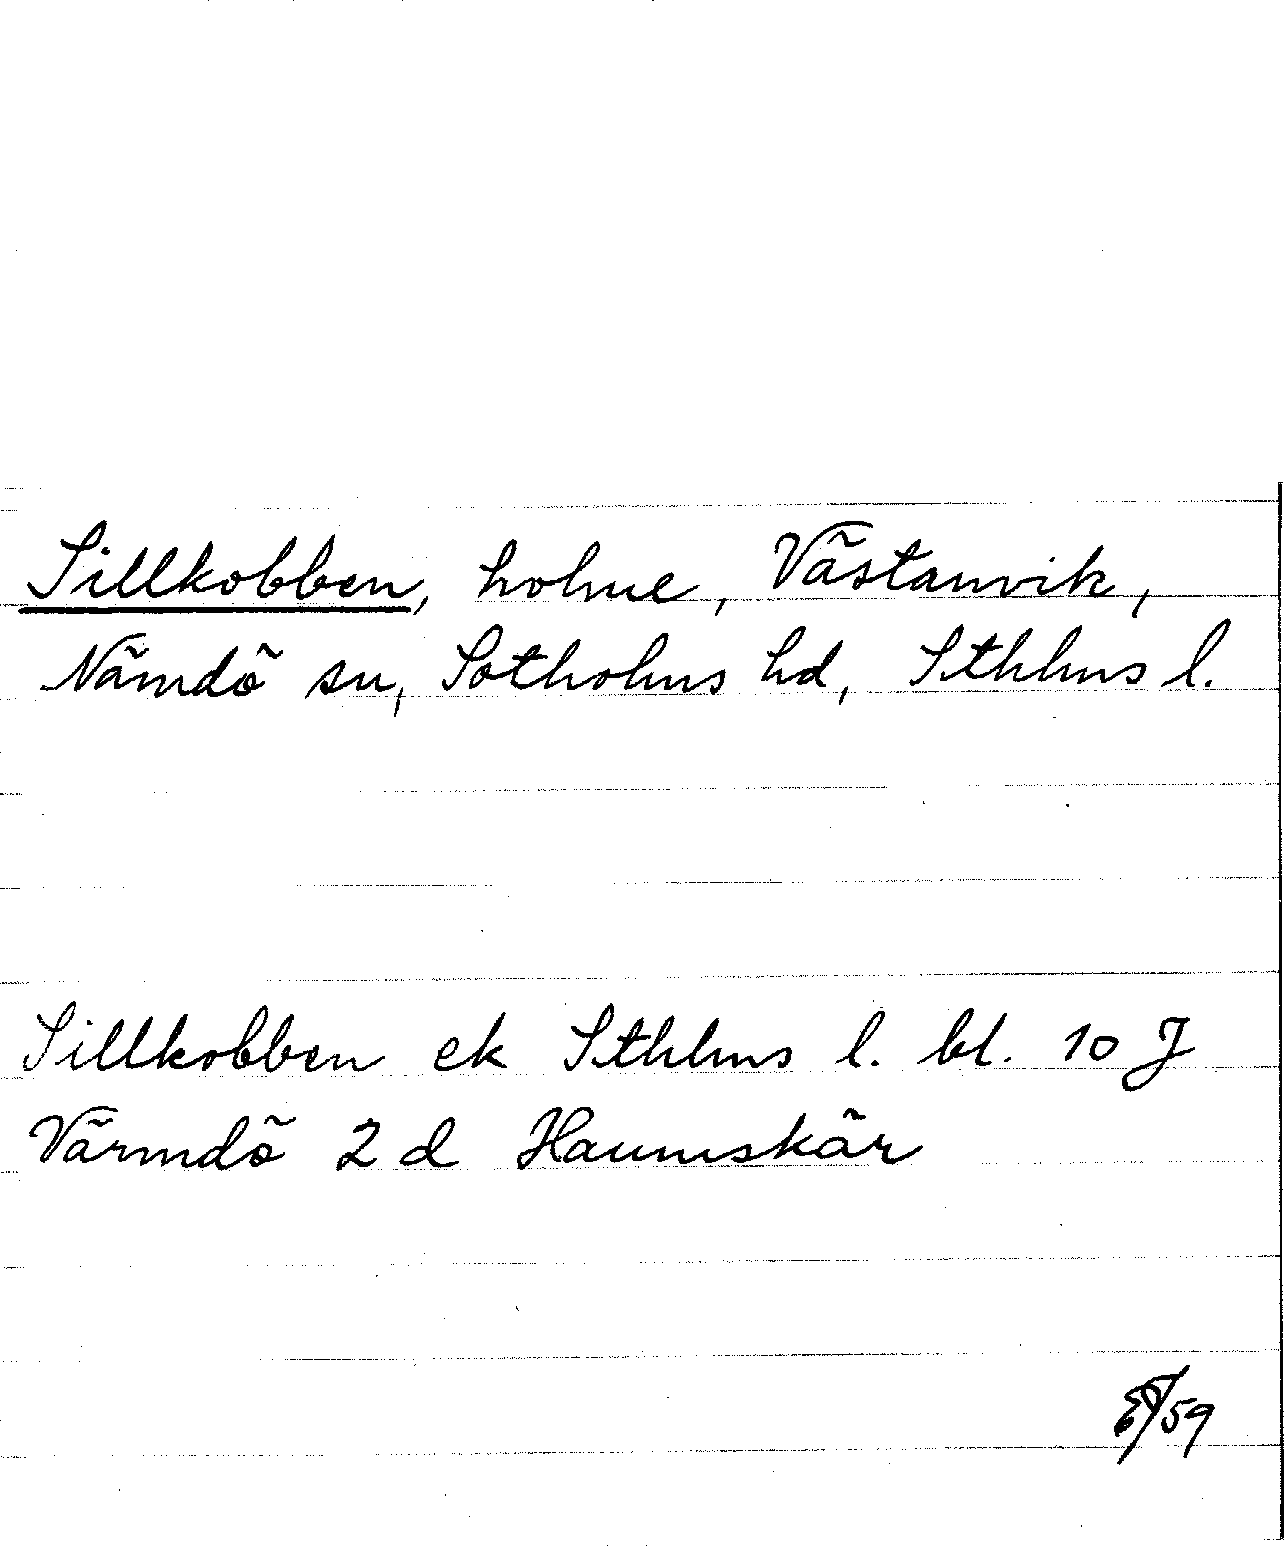 Sillkobben, holme, Västanvik,
Nämdö sn, Sotholms hd, Sthlms l.
Sillkobben ek Sthlms l. bl. 10 J
Värmdö 2 d Hamnskär
/59